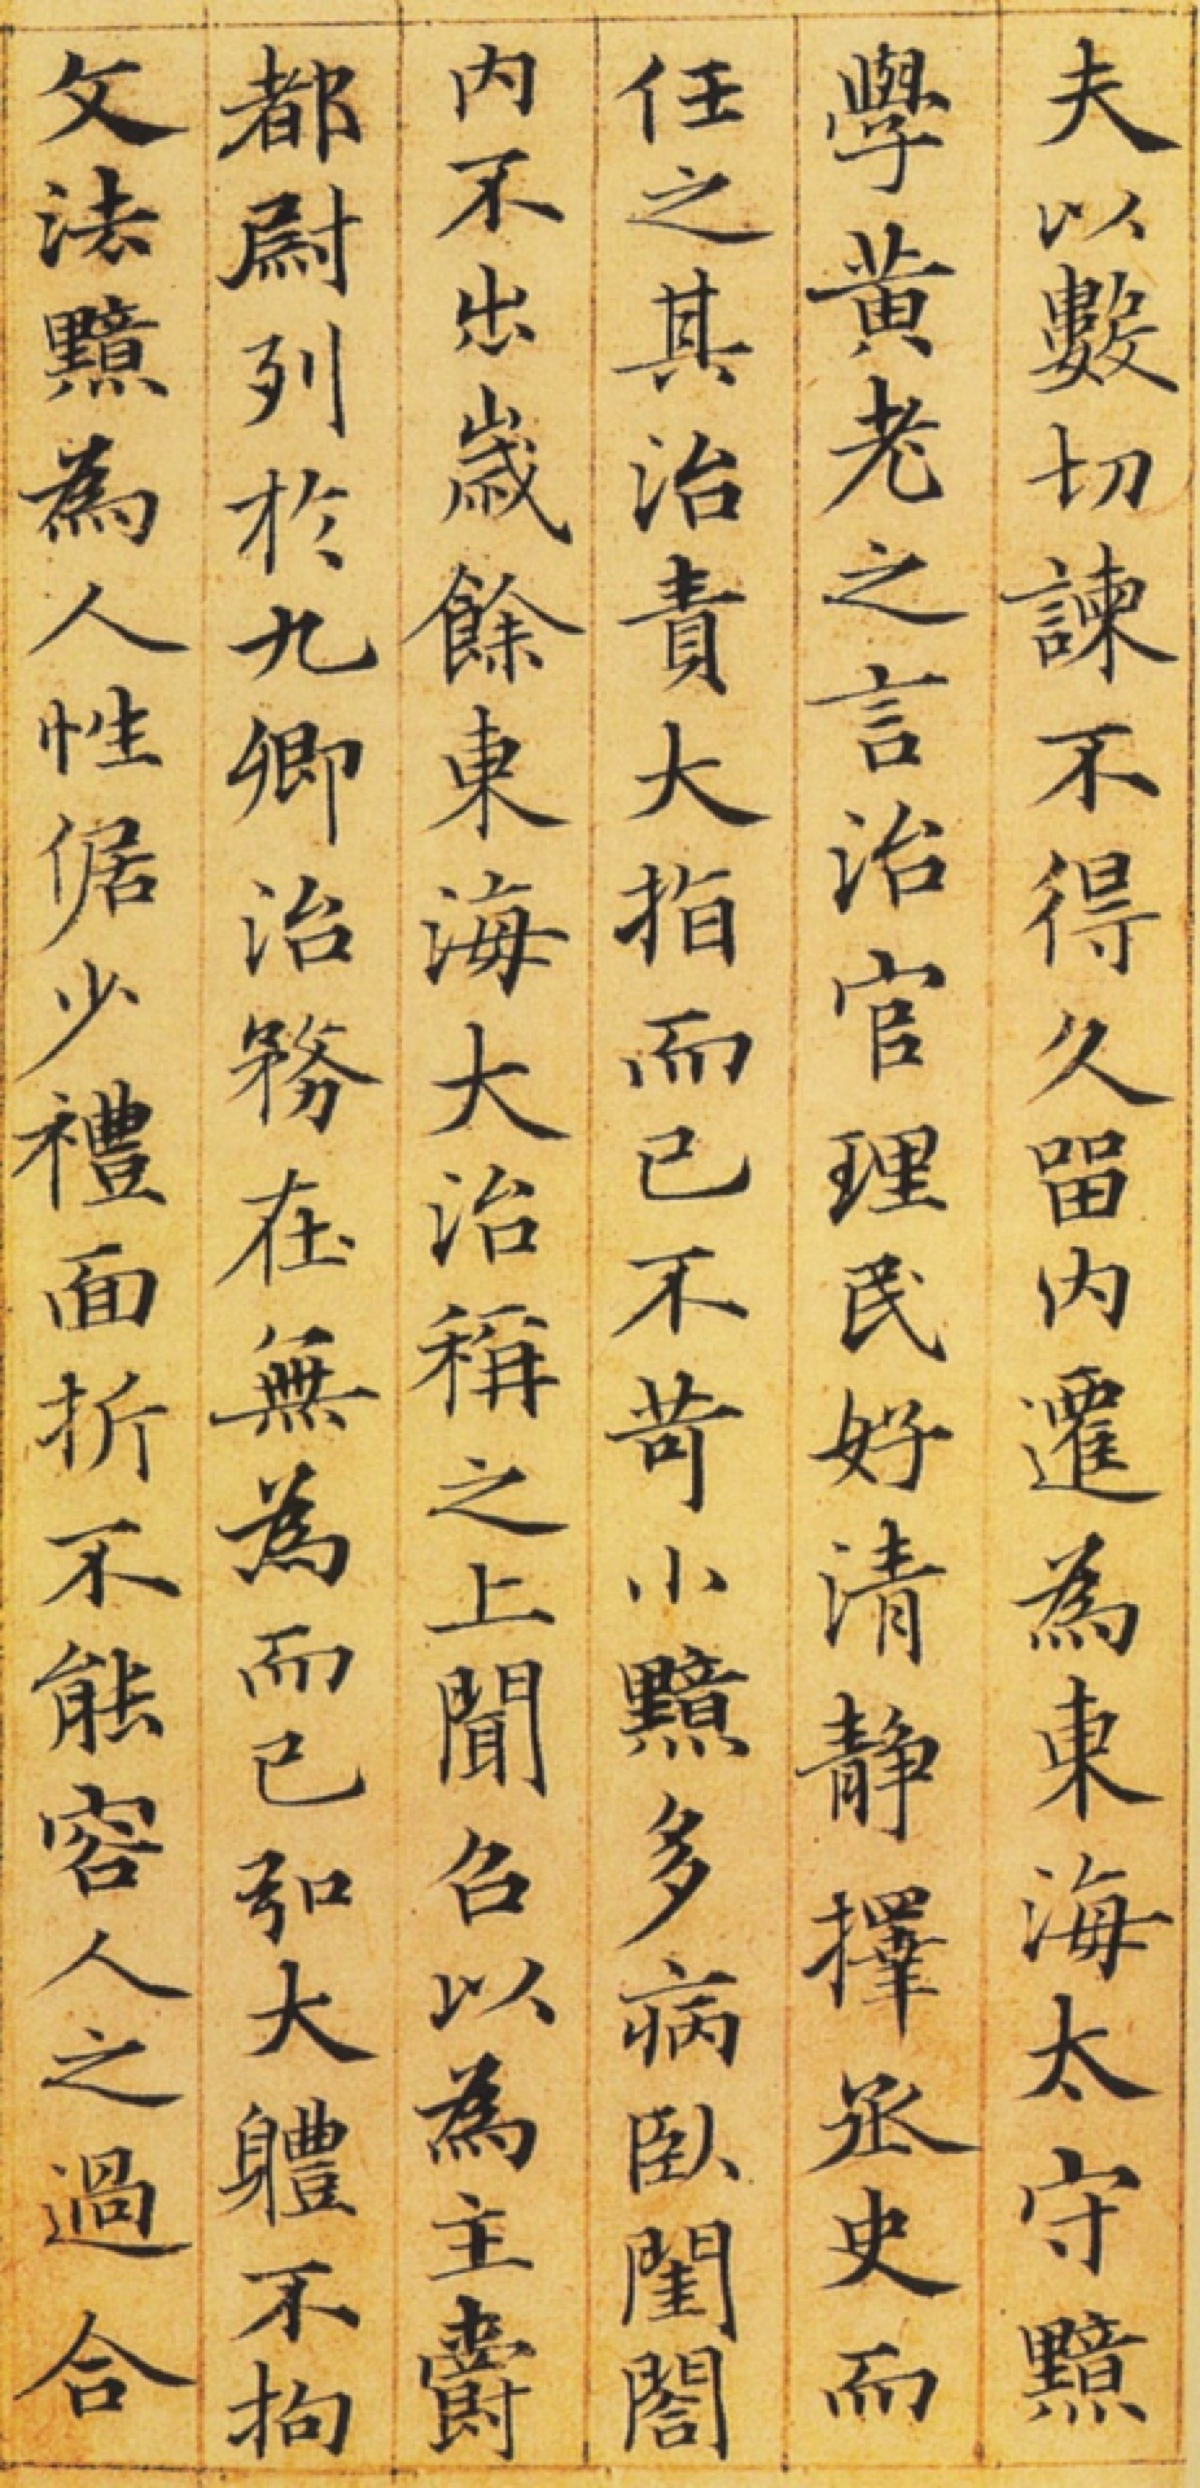 夫以數切諫不得久留内遷為東海太守黯
學黃老之言治官理民好清靜擇丞史而
任之其治責大指而已不苛小黯多病臥閨閤
内不出歲餘東海大治稱之上聞召以為主爵
都尉列於九卿治務在無為而已引大體不拘
文法黯為人性倨少禮面折不能容人之過合